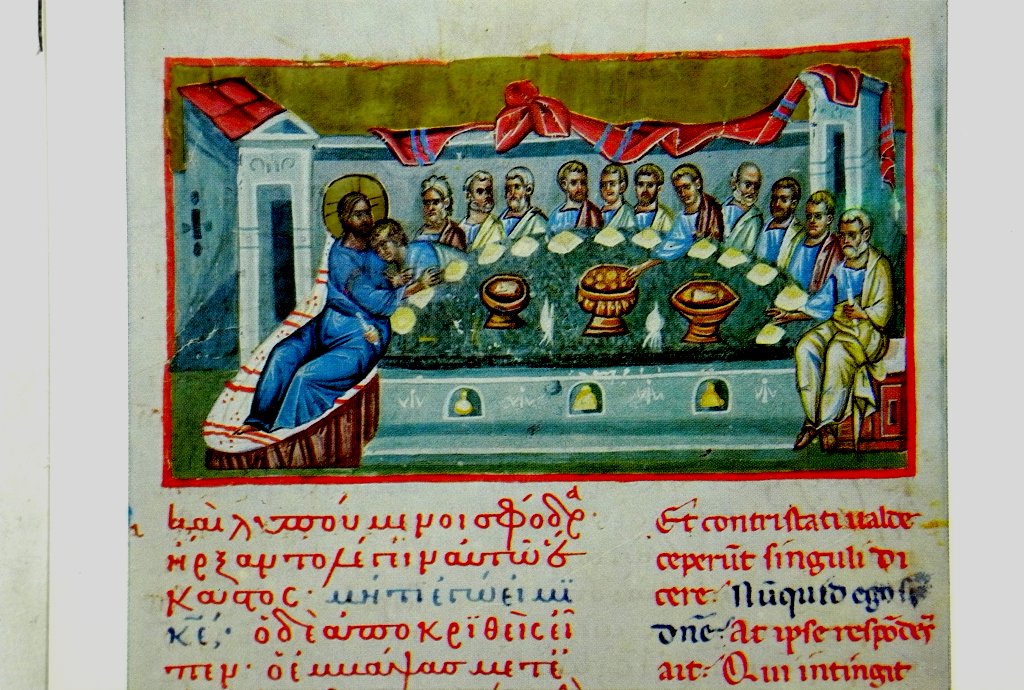 καὶ λυπούμενοι σφόδρα·
ἤρξαντο λέγειν αὐτῶ ἕ
καστος· μήτι ἐγώ εἰμϊ
κε̅; ὁ δὲ ἀποκρϊθεὶς εἶ
πεν· ὁ ἐμβάψας μετ ἐ
Et contristati ualde
ceperūt singuli di
cere. Nūquid ego
dn̄e. At ipse respōdēs
ait. Qui intingit